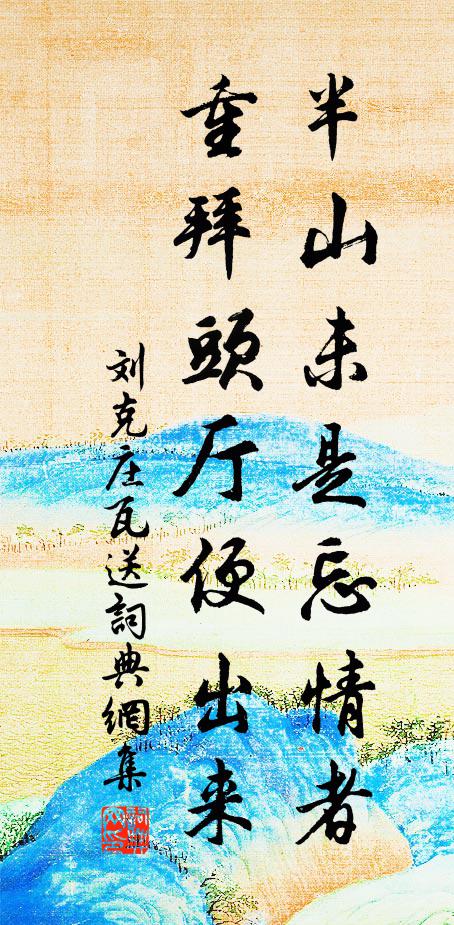 半山未是忘情者
重拜頭厅便出来
刘克庄瓦送詞典網集